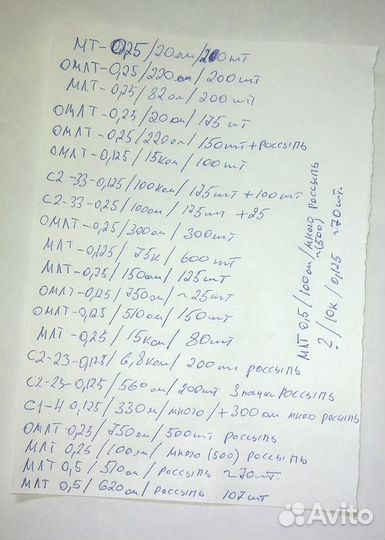 МТ-0,25/20ом/200шт
ОМЛТ-0,25/220ом/200шт
МЛТ-0,25/82ом/200шт
ОМЛТ-0,25/20ом/175шт
ОМЛТ-0,25/220ом/150шт+россыпь
ОМЛТ-0,125/15ком/100шт
С2-33-0,125/100ком/175шт+100шт
С2-33-0,25/100ом/175шт+25
ОМЛТ-0,25/300ом/300шт
МЛТ-0,125/75к/600шт
МЛТ-0,25/150ом/125шт
ОМЛТ-0,125/750ом/~25шт
ОМЛТ-0,125/510ом/150шт
МЛТ-0,25/15ком/80шт
С2-23-0,125/6,8ком/200шт россыпь
С2-23-0,125/560ом/200шт 3 пачки/россыпь
С1-4 0,125/330м/много/+300ом много россыпь
ОМЛТ 0,25/750ом/500шт россыпь
МЛТ 0,25/100ом/много (500) россыпь
МЛТ 0,5/510ом/россыпь ~70шт.
МЛТ 0,5/620ом/россыпь 107шт
МЛТ 0,5/100ом/много россыпь
~(500)
?/10к/0,125 ~70шт.
Avito